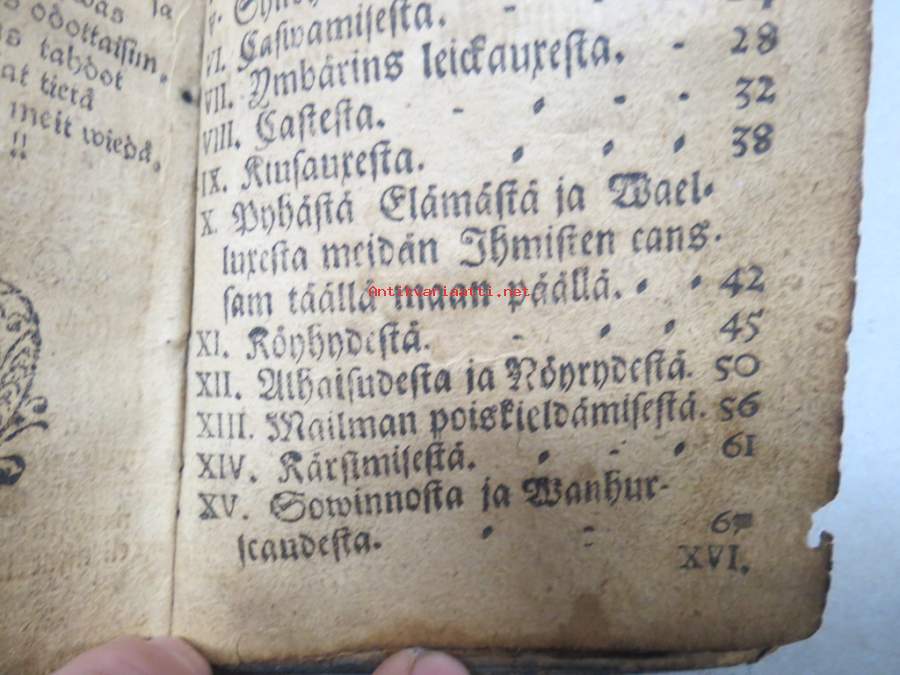 ja
odottaisim.
tahdot
at tietä
meit wiedä.
!!
VI. Caswamisesta. -
VII. Ymbärins leickauxesta. - 28
VIII. Castesta. - - - 32
IX. Kiusauxesta. 38
X. Pyhästä Elämästä ja Wael-
luxesta meidän Ihmisten cans-
sam täällä maan päällä. 42
XI. Köyhydestä. - 45
XII. Alhaisudesta ja Nöyrydestä. 50
XIII. Mailman poiskieldämisestä. 56
XIV. Kärsimisestä. - 61
XV. Sowinnosta ja Wanhur-
scaudesta. -
XVI.
Antikvariaatti.net